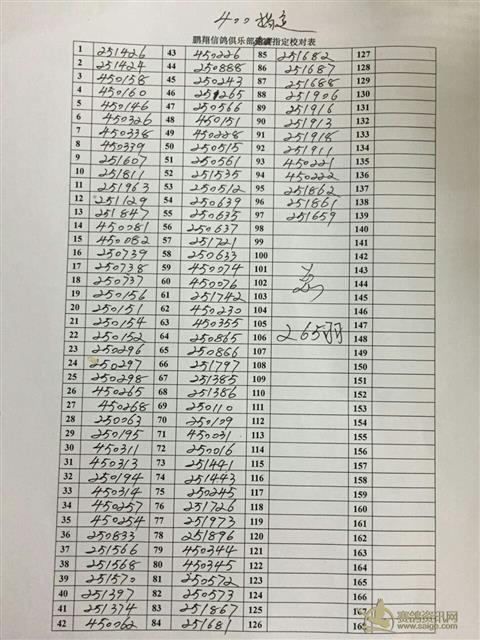 400指定
鹏翔信鸽俱乐部指定校对表
1 251426 43 450226 85 251682 127
2 251424 44 250888 86 251687 128
3 450158 45 250243 87 251688 129
4 450160 46 251265 88 251906 130
5 450146 47 250566 89 251916 131
6 450326 48 450151 90 251913 132
7 450338 49 450228 91 251918 133
8 450339 50 250515 92 251911 134
9 251607 51 250561 93 450221 135
10 251811 52 251535 94 450222 136
11 251963 53 250512 95 251862 137
12 251129 54 250639 96 251861 138
13 251847 55 250635 97 251659 139
14 450081 56 250637 98 140
15 450082 57 251721 99 141
16 250739 58 250633 100 142
17 250738 59 450074 101 143
18 250737 60 450076 102 144
19 250156 61 251742 103 145
20 250151 62 450230 104 146
21 250154 63 450355 105 147
22 250152 64 250865 106 265羽 148
23 250296 65 250866 107 149
24 250297 66 251797 108 150
25 250298 67 251385 109 151
26 450265 68 251386 110 152
27 450268 69 250110 111 153
28 250063 70 250109 112 154
29 250195 71 450031 113 155
30 450311 72 250016 114 156
31 450313 73 251441 115 157
32 250194 74 251443 116 158
33 450314 75 250245 117 159
34 450257 76 251726 118 160
35 450254 77 251973 119 161
36 250833 78 251896 120 162
37 251566 79 450344 121 163
38 251568 80 450345 122 164
39 251570 81 250572 123 165
40 251397 82 250573 124 166
41 251374 83 251867 125 167
42 450062 84 251681 126 168
赛鸽资讯网
www.saige.com